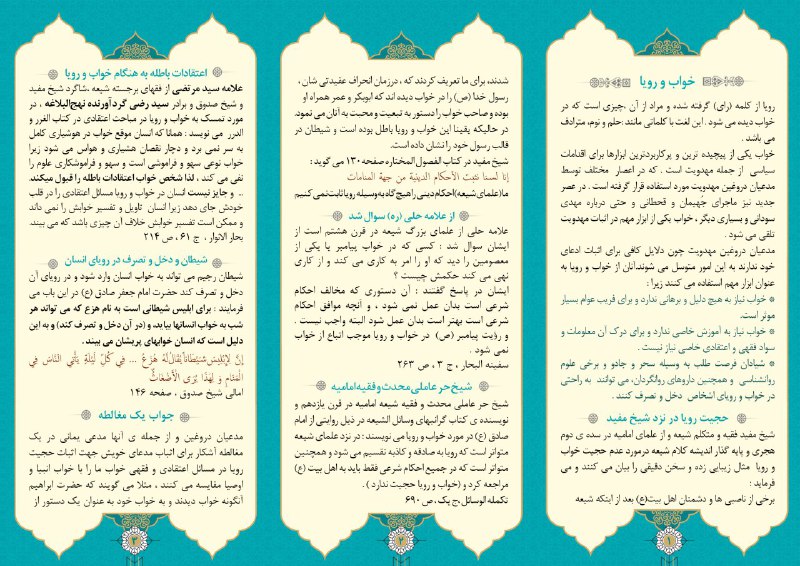 خواب و رویا
رویا از کلمه (رای) گرفته شده و مراد از آن ،چیزی است که در
خواب دیده می شود . این لغت با کلماتی مانند:حلم و نوم، مترادف
می باشد .
خواب یکی از پیچیده ترین و پرکاربردترین ابزارها برای اقدامات
سیاسی از جمله مهدویت است . که در اعصار مختلف توسط
مدعیان دروغین مهدویت مورد استفاده قرار گرفته است . در عصر
جدید نیز ماجرای جُهیمان و قحطانی و حتی درباره مهدی
سودانی و بسیاری دیگر ، خواب یکی از ابزار مهم در اثبات مهدویت
تلقی می شود .
مدعیان دروغین مهدویت چون دلایل کافی برای اثبات ادعای
خود ندارند به این امور متوسل می شوند،آنان از خواب و رویا به
عنوان ابزار مهم استفاده می کنند زیرا :
* خواب نیاز به هیچ دلیل و برهانی ندارد و برای فریب عوام بسیار
موثر است.
* خواب نیاز به آموزش خاصی ندارد و برای درک آن معلومات و
سواد فقهی و اعتقادی خاصی نیاز نیست .
* شیادان فرصت طلب به وسیله سحر و جادو و برخی علوم
روانشناسی و همچنین داروهای روانگردان، می توانند به راحتی
در خواب و رویای اشخاص دخل و تصرف کنند .
حجیت رویا در نزد شیخ مفید
شیخ مفید فقیه و متکلم شیعه و از علمای امامیه در سده ی دوم
هجری و پایه گذار اندیشه کلام شیعه درمورد عدم حجیت خواب
و رویا مثال زیبایی زده و سخن دقیقی را بیان می کنند و می
فرماید :
برخی از ناصبی ها و دشمنان اهل بیت(ع) بعد از اینکه شیعه
۱
شدند، برای ما تعریف کردند که ، درزمان انحراف عقیدتی شان ،
رسول خدا (ص) را در خواب دیده اند که ابوبکر و عمر همراه او
بوده و صاحب خواب را دستور به تبعیت و محبت به آنان می نمود.
در حالیکه یقینا این خواب و رویا باطل بوده است و شیطان در
قالب رسول خود را نشان داده است.
شیخ مفید در کتاب الفصول المختاره صفحه ۱۳۰ می گوید :
إنا لسنا نثبت الأحكام الدينية من جهة المنامات
ما(علمای شیعه)احکام دینی را هیچ گاه به وسیله رویا ثابت نمی کنیم
از علامه حلی (ره) سوال شد
علامه حلی از علمای بزرگ شیعه در قرن هشتم است از
ایشان سوال شد : کسی که در خواب پیامبر یا یکی از
معصومین را دید که او را امر به کاری می کند و از کاری
نهی می کند حکمش چیست ؟
ایشان در پاسخ گفتند : آن دستوری که مخالف احکام
شرعی است بدان عمل نمی شود ، و آنچه موافق احکام
شرعی است بهتر است بدان عمل شود البته واجب نیست .
و رؤیت پیامبر (ص) در خواب و رویا موجب اتباع از خواب
نمی شود .
سفینه البحار ، ج ۳ ، ص ۲۶۳
شیخ حر عاملی محدث و فقیه امامیه
شیخ حر عاملی محدث و فقیه شیعه امامیه در قرن یازدهم و
نویسنده ی کتاب گرانبهای وسائل الشیعه در ذیل روایتی از امام
صادق (ع) در مورد خواب و رویا می نویسند : در نزد علمای شیعه
متواتر است که رویا به صادقه و کاذبه تقسیم می شود و همچنین
متواتر است که در جمیع احکام شرعی فقط باید به اهل بیت (ع)
مراجعه کرد و (خواب و رویا حجیت ندارد ) .
تکمله الوسائل ،ج یک ، ص ۶۹۰
۲
اعتقادات باطله به هنگام خواب و رویا
علامه سید مرتضی از فقهای برجسته شیعه ،شاگرد شیخ مفید
و شیخ صدوق و برادر سید رضی گردآورنده نهج‌البلاغه ، در
مورد تمسک به خواب و رویا در مباحث اعتقادی در کتاب الغرر و
الدرر می نویسد : همانا که انسان موقع خواب در هوشیاری کامل
به سر نمی برد و دچار نقصان هشیاری و هواس می شود زیرا
خواب نوعی سهو و فراموشی است و سهو و فراموشکاری علوم را
نفی می کند ، لذا شخص خواب اعتقادات باطله را قبول میکند.
.. و جایز نیست انسان در خواب و رویا مسائل اعتقادی را در قلب
خودش جای دهد زیرا انسان تاویل و تفسیر خوابش را نمی داند
و ممکن است تفسیر خوابش خلاف آن چیزی باشد که می بیند.
بحار الانوار ، ج ۶۱ ، ص ۲۱۴
شیطان و دخل و تصرف در رویای انسان
شیطان رجیم می تواند به خواب انسان وارد شود و در رویای آن
دخل و تصرف کند حضرت امام جعفر صادق (ع) در این باب می
فرمایند : برای ابلیس شیطانی است به نام هزع که می تواند هر
شب به خواب انسانها بیاید، و (در آن دخل و تصرف کند) و به این
دلیل است که انسان خوابهای پریشان می بیند.
إِنَّ لِإِبْلِيسَ شَيْطَاناً يُقَالُ لَهُ هُزَعُ ... فِي كُلِّ لَيْلَةٍ يَأْتِي النَّاسَ فِي
الْمَنَامِ وَ لِهَذَا يُرَى الْأَضْغَاثُ
امالی شیخ صدوق ، صفحه ۱۴۶
جواب یک مغالطه
مدعیان دروغین و از جمله ی آنها مدعی یمانی در یک
مغالطه آشکار برای اثبات مدعای خویش جهت اثبات حجیت
رویا در مسائل اعتقادی و فقهی خواب ما را با خواب انبیا و
اوصیا مقایسه می کنند ، مثلا می گویند که حضرت ابراهیم
آنگونه خواب دیدند و به خواب خود به عنوان یک دستور از
۳